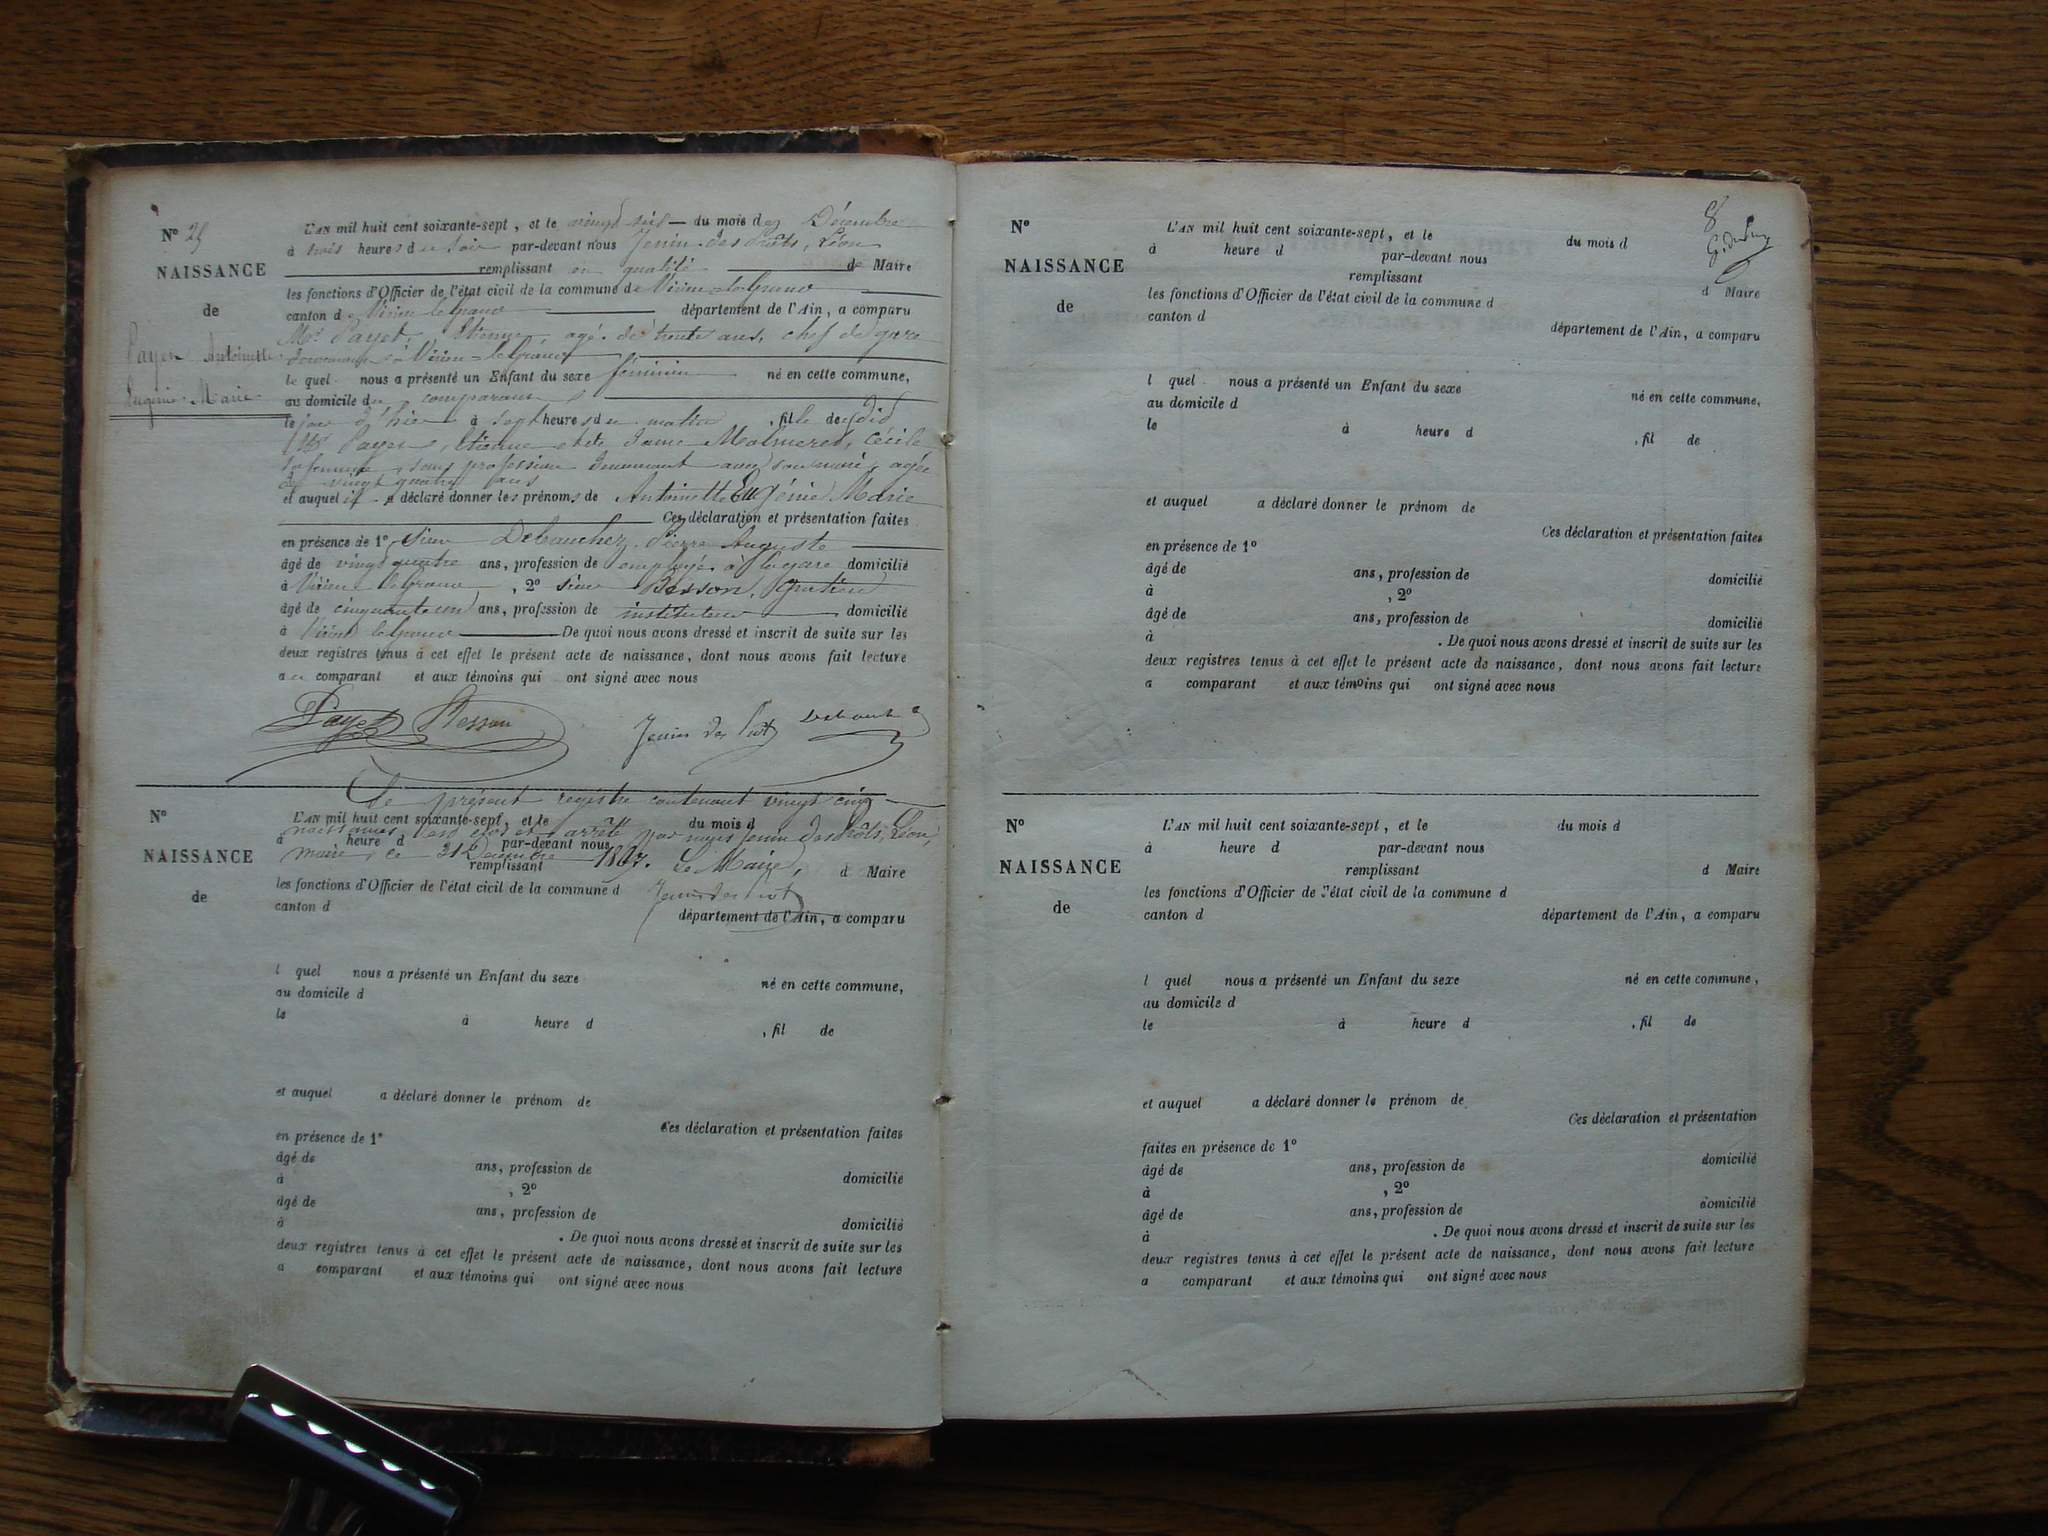 N° 25
NAISSANCE
de
Payen Antoinette
Eugénie Marie
L'AN mil huit cent soixante-sept, et le vingt six du mois de Décembre
à trois heures du soir par-devant nous Jenin des Prôts, Léon
remplissant en qualité de Maire
les fonctions d'Officier de l'état civil de la commune de Virieu-le-Grand
canton de Virieu le Grand département de l'Ain, a comparu
Mr Payet, Etienne, agé de trente ans, chef de gare
demeurant à Virieu-le-Grand
le quel nous a présenté un Enfant du sexe féminin né en cette commune,
au domicile du comparant
le jour d'hier à sept heures du matin, fille de dit
Payen, Etienne et de dame Cécile
sa femme, sans profession demeurant avec son mari, agée
de vingt quatre ans
et auquel il a déclaré donner les prénoms de Antoinette Eugénie Marie
Ces déclaration et présentation faites
en présence de 1° sieur Debauchez Pierre Auguste
âgé de vingt quatre ans, profession de employé à la gare domicilié
à Virieu le Grand, 2° sieur Besson,
âgé de cinquante un ans, profession de instituteur domicilié
à Virieu le Grand De quoi nous avons dressé et inscrit de suite sur les
deux registres tenus à cet effet le présent acte de naissance, dont nous avons fait lecture
au comparant et aux témoins qui ont signé avec nous
Payet Besson Jenin des Prôts
Le présent registre contenant vingt cinq
naissances, a été clos et arrêté par nous Jenin des Prôts, Léon,
maire, ce 31 Décembre 1867. Le Maire,
N°
NAISSANCE
de
L'AN mil huit cent soixante-sept, et le du mois d
à heure d par-devant nous
remplissant d Maire
les fonctions d'Officier de l'état civil de la commune d
canton d département de l'Ain, a comparu
l quel nous a présenté un Enfant du sexe né en cette commune,
au domicile d
le à heure d , fil de
et auquel a déclaré donner le prénom de
Ces déclaration et présentation faites
en présence de 1°
âgé de ans, profession de domicilié
à , 2°
âgé de ans, profession de domicilié
à . De quoi nous avons dressé et inscrit de suite sur les
deux registres tenus à cet effet le présent acte de naissance, dont nous avons fait lecture
a comparant et aux témoins qui ont signé avec nous
8
N°
NAISSANCE
de
L'AN mil huit cent soixante-sept, et le du mois d
à heure d par-devant nous
remplissant d Maire
les fonctions d'Officier de l'état civil de la commune d
canton d département de l'Ain, a comparu
l quel nous a présenté un Enfant du sexe né en cette commune,
au domicile d
le à heure d , fil de
et auquel a déclaré donner le prénom de
Ces déclaration et présentation faites
en présence de 1°
âgé de ans, profession de domicilié
à , 2°
âgé de ans, profession de domicilié
à . De quoi nous avons dressé et inscrit de suite sur les
deux registres tenus à cet effet le présent acte de naissance, dont nous avons fait lecture
a comparant et aux témoins qui ont signé avec nous
N°
NAISSANCE
de
L'AN mil huit cent soixante-sept, et le du mois d
à heure d par-devant nous
remplissant d Maire
les fonctions d'Officier de l'état civil de la commune d
canton d département de l'Ain, a comparu
l quel nous a présenté un Enfant du sexe né en cette commune,
au domicile d
le à heure d , fil de
et auquel a déclaré donner le prénom de
Ces déclaration et présentation
faites en présence de 1°
âgé de ans, profession de domicilié
à , 2°
âgé de ans, profession de domicilié
à . De quoi nous avons dressé et inscrit de suite sur les
deux registres tenus à cet effet le présent acte de naissance, dont nous avons fait lecture
a comparant et aux témoins qui ont signé avec nous